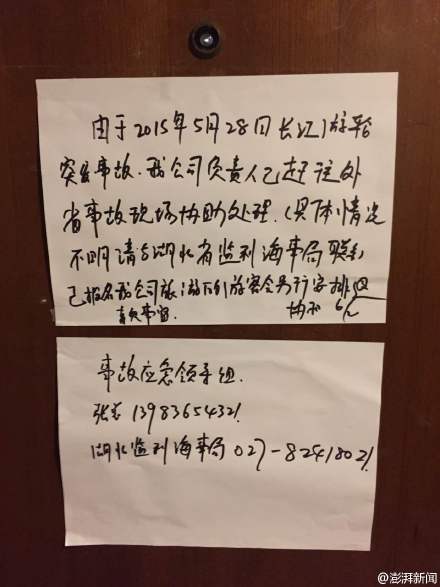 由于2015年5月28日长江游轮
突发事故.我公司负责人已赶往外
省事故现场协助处理.(具体情况
不明请与湖北省监利海事局联系)
已报名我公司旅游
安排
事故应急领导组.
张总 13983654321
湖北监利海事局 027-82418021
@澎湃新闻